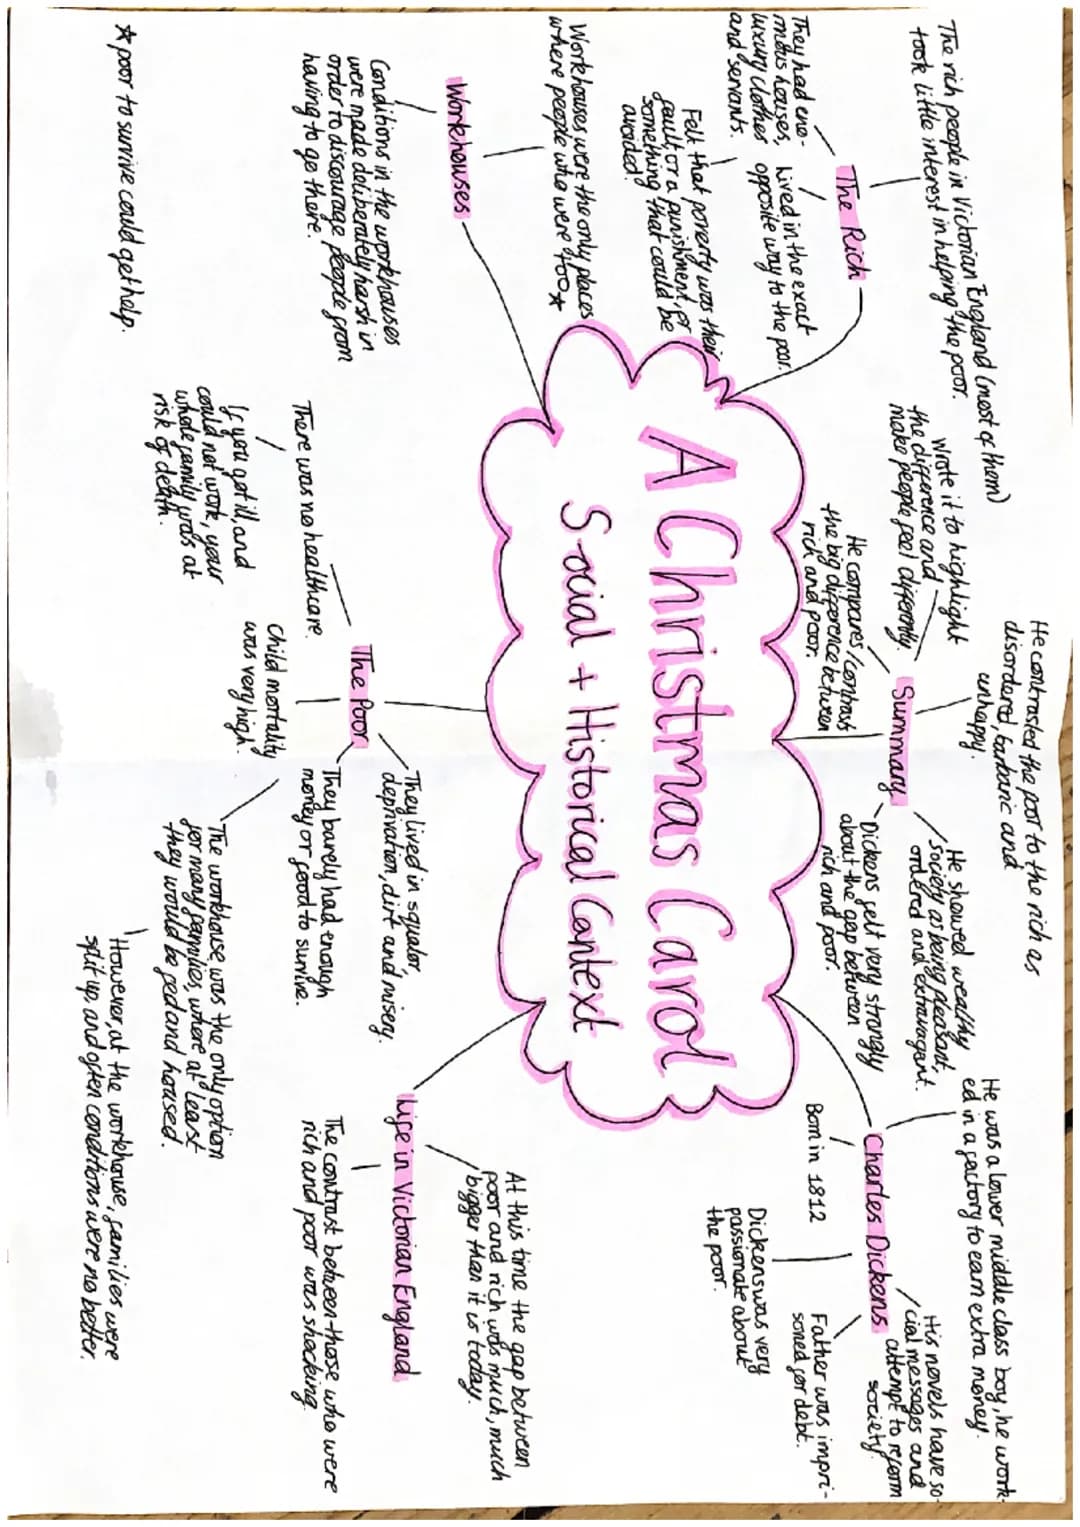 A Christmas Carol
Social + Historical Context
The Rich
The rich people in Victorian England (most of them)
took little interest in helping the poor.
They had eno-
rmous houses,
luxury clothes
and servants.
Lived in the exact
opposite way to the poor.
Felt that poverty was their
fault, or a punishment, or
something that could be
avoided!
Summary
Wrote it to highlight
the difference and
make people feel differently.
He compares/contrast
the big difference between
rich and poor.
He contrasted the poor to the rich as
disordered, barbaric and
unhappy.
He showed wealthy
society as being pleasant,
ordered and extravagent.
Dickens felt very strongly
about the gap between
rich and poor.
Charles Dickens
He was a lower middle class boy, he work-
ed in a factory to earn extra money.
His novels have so-
cial messages and
attempt to reform
society.
Born in 1812
Dickens was very
passionate about
the poor.
Father was impri-
soned for debt.
Workhouses
Workhouses were the only places
where people who were too ★
Conditions in the workhouses
were made deliberately harsh in
order to discourage people from
having to go there.
★ poor to survive could get help.
The Poor
There was no healthcare.
If you got ill, and
could not work, your
whole family was at
risk of death.
Child mortality
was very high.
They lived in squalor,
deprivation, dirt and misery.
They barely had enough
money or food to survive.
The workhouse was the only option
for many families, where at least
they would be fed and housed.
However, at the workhouse, families were
split up, and often conditions were no better.
Life in Victorian England
At this time the gap between
poor and rich was much, much
bigger than it is today.
The contrast between those who were
rich and poor was shocking.